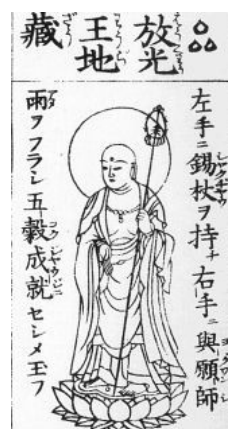 放光
王地
藏
左手ニ錫杖ヲ持チ右手ニ與願師
雨ヲフラシ五穀成就セシメ玉フ